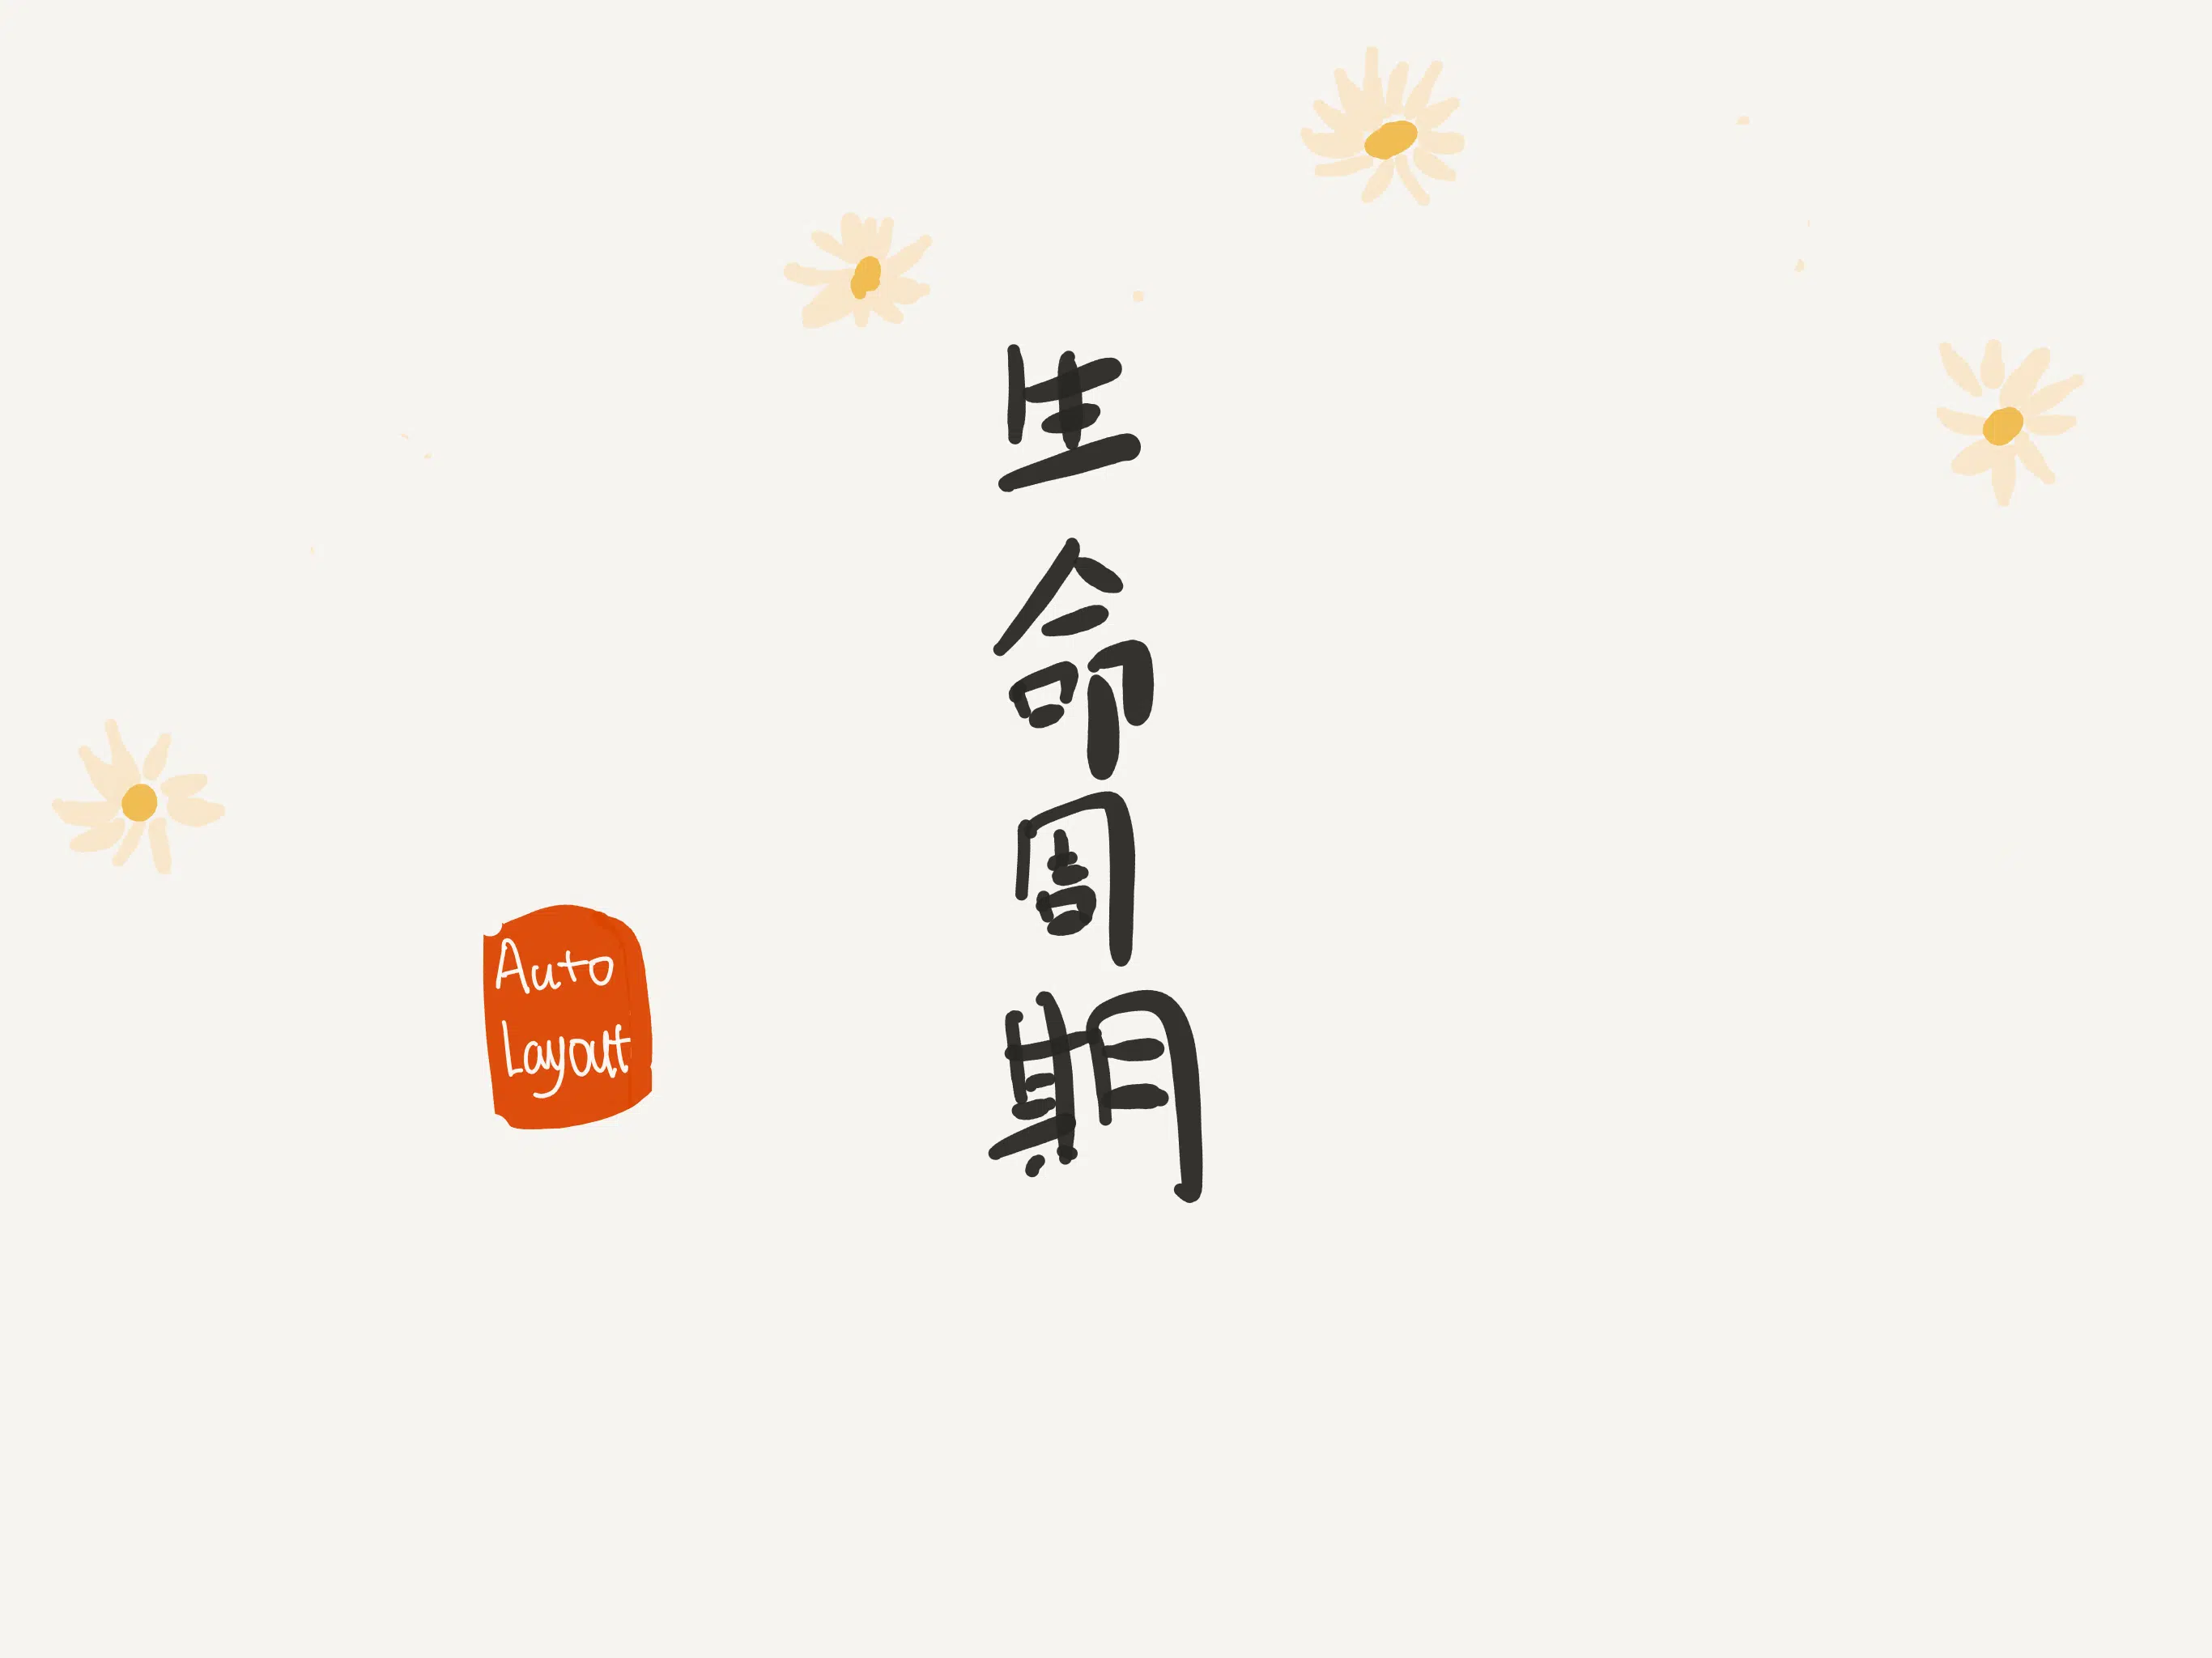 生命周期
Auto
Layout